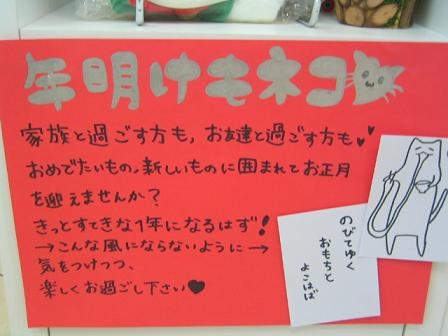 年明けもネコ
家族と過ごす方も、お友達と過ごす方も♥♥
おめでたいもの、新しいものに囲まれてお正月
を迎えませんか？
きっとすてきな1年になるはず！
→こんな風にならないように→
気をつけつつ、
楽しくお過ごし下さい♥
のびてゆく
おもちと
よこはば